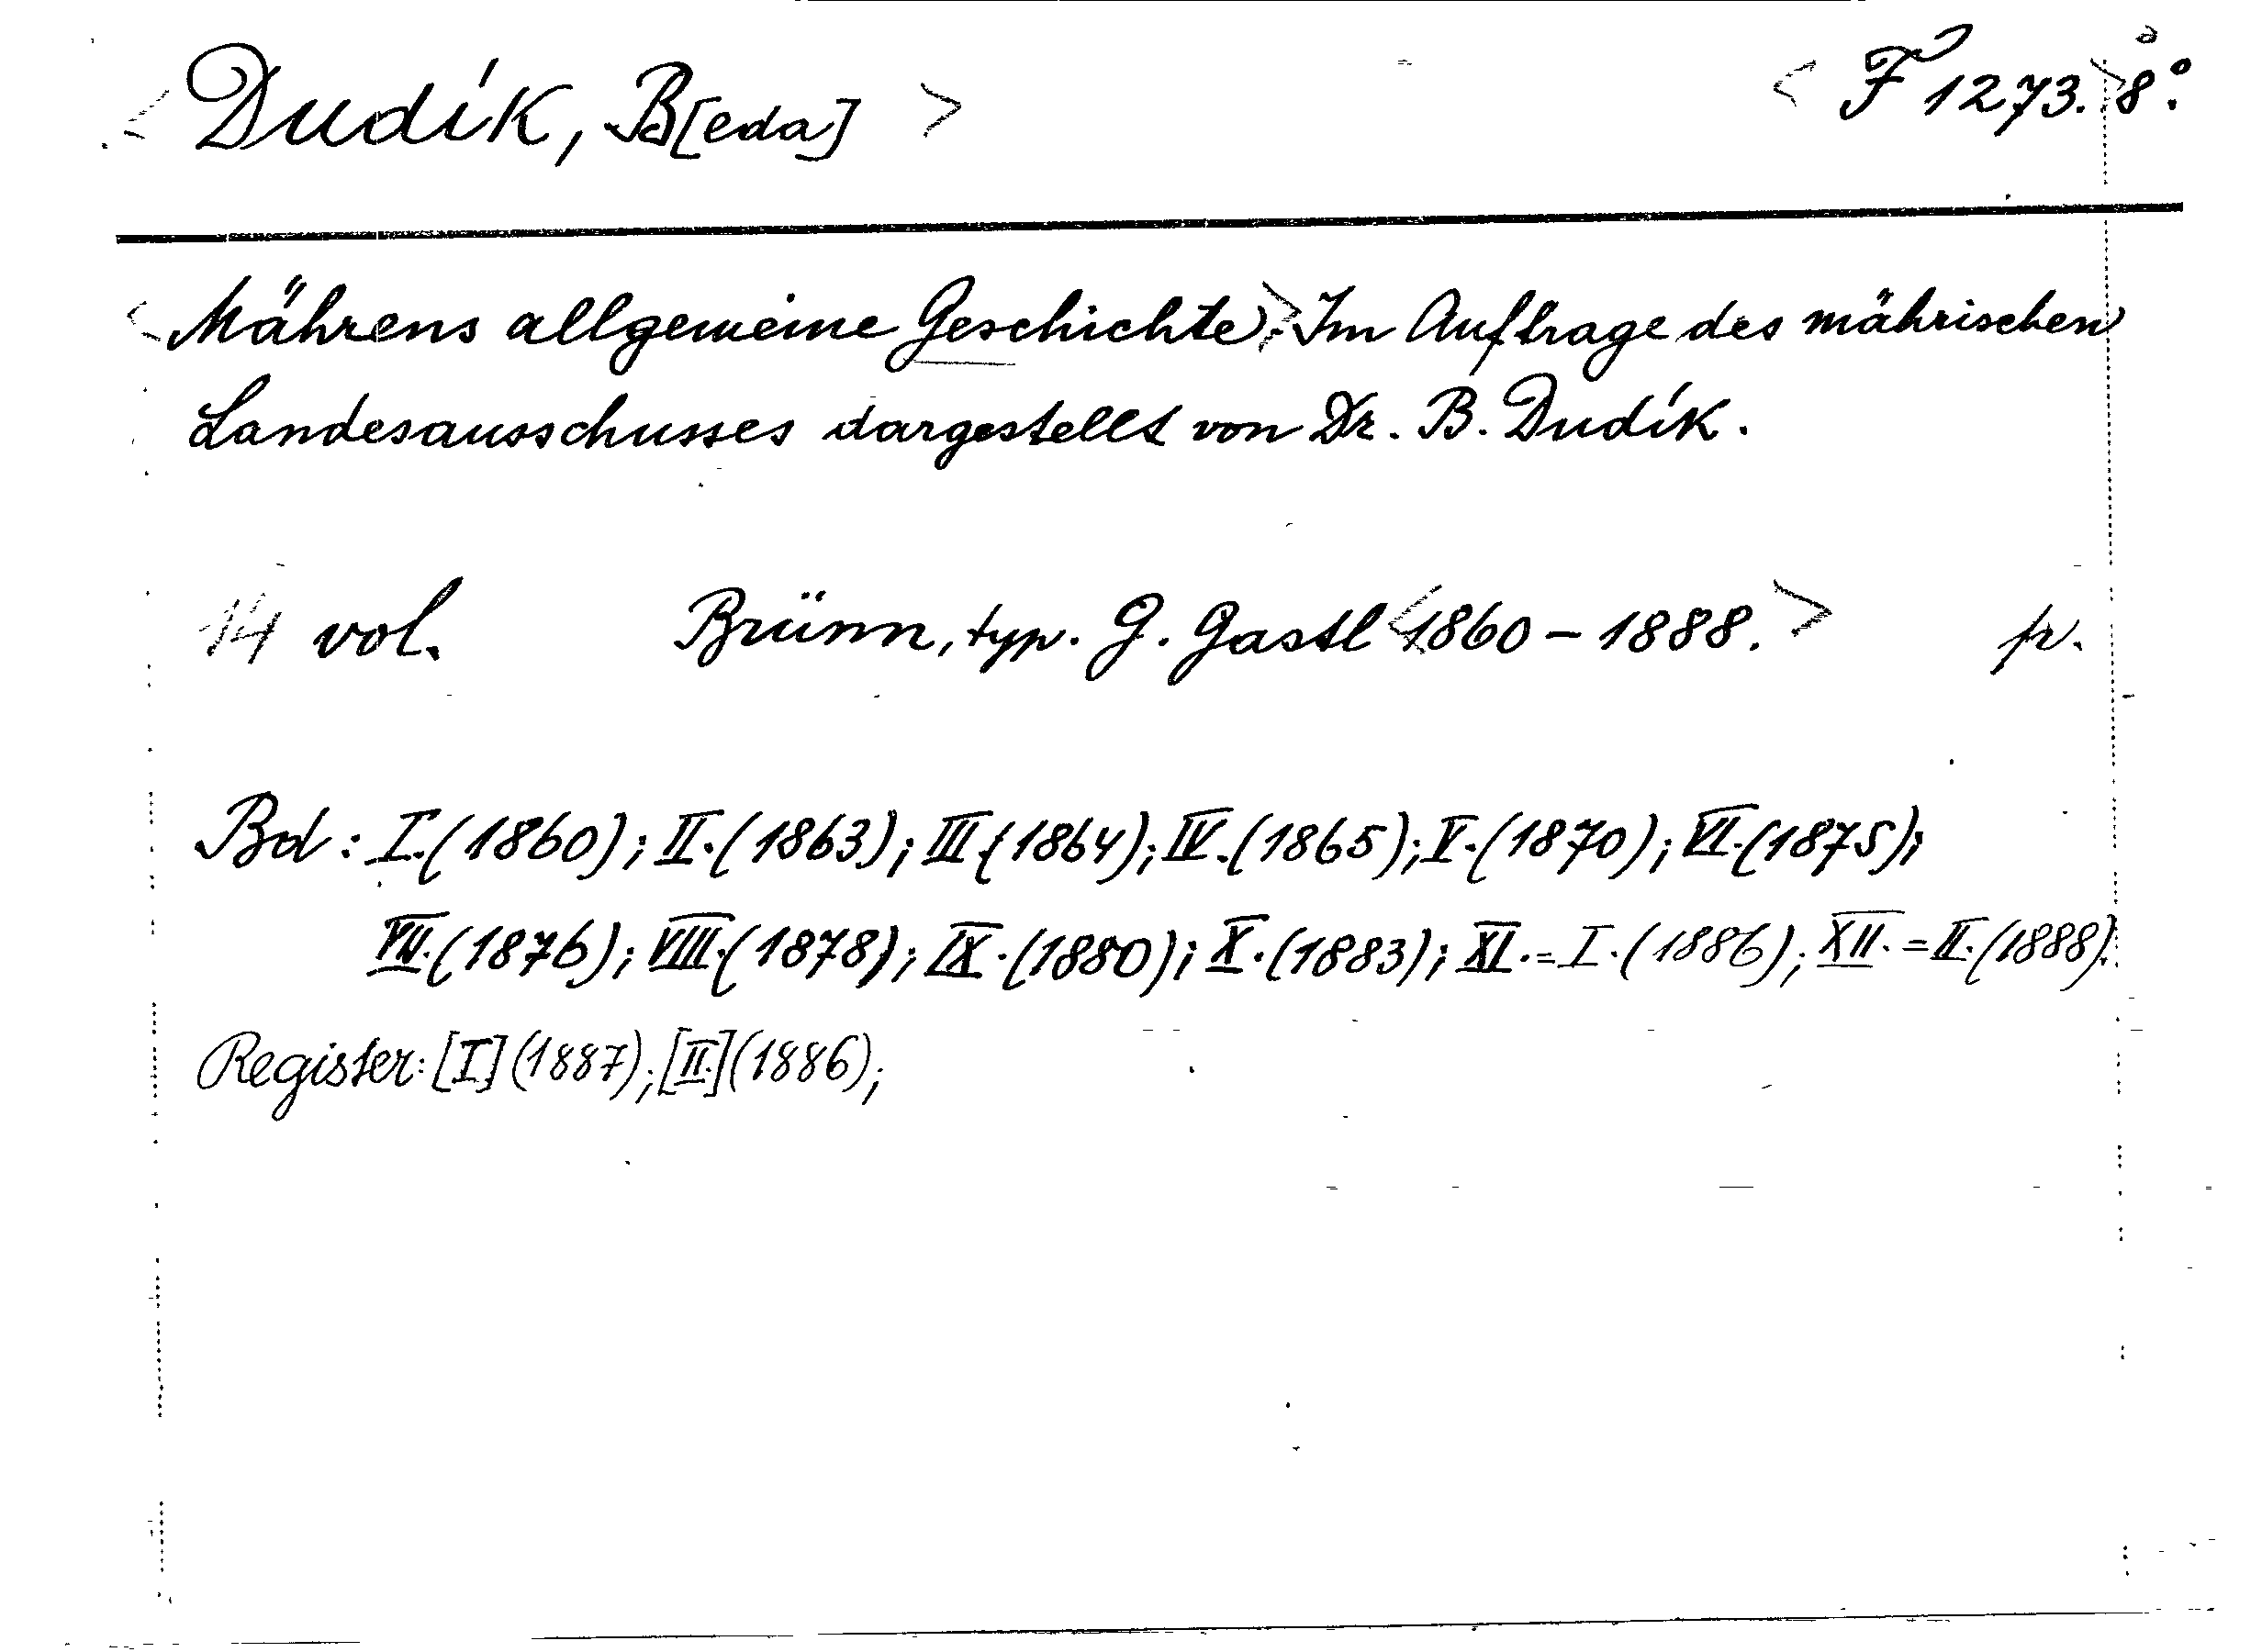 < Dudík, B[eda] > < F 1273. > 8°.
< Mährens allgemeine Geschichte >. Im Auftrage des mährischen
Landesausschusses dargestellt von Dr. B. Dudík.
14 vol. Brünn, typ. G. Gastl < 1860 – 1888. > pr.
Bd : I. (1860) ; II. (1863) ; III. (1864) ; IV. (1865) ; V. (1870) ; VI. (1875) ;
VII. (1876) ; VIII. (1878) ; IX. (1880) ; X. (1883) ; XI. = I. (1886) ; XII. = II. (1888).
Register: [I] (1887) ; [II.] (1886) ;